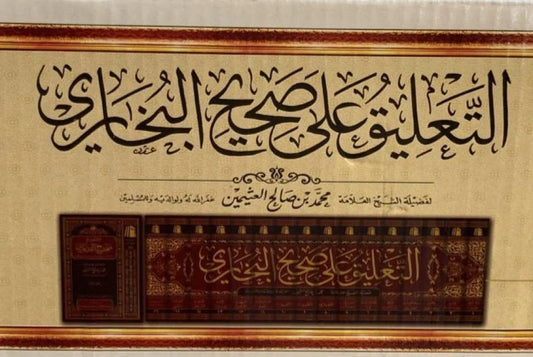 التَّعْلِيقُ عَلَى صَحِيحِ البُخَارِي
لفضيلة الشيخ العلامة محمد بن صالح العثيمين غفر الله له ولوالديه وللمسلمين
التعليق على صحيح البخاري